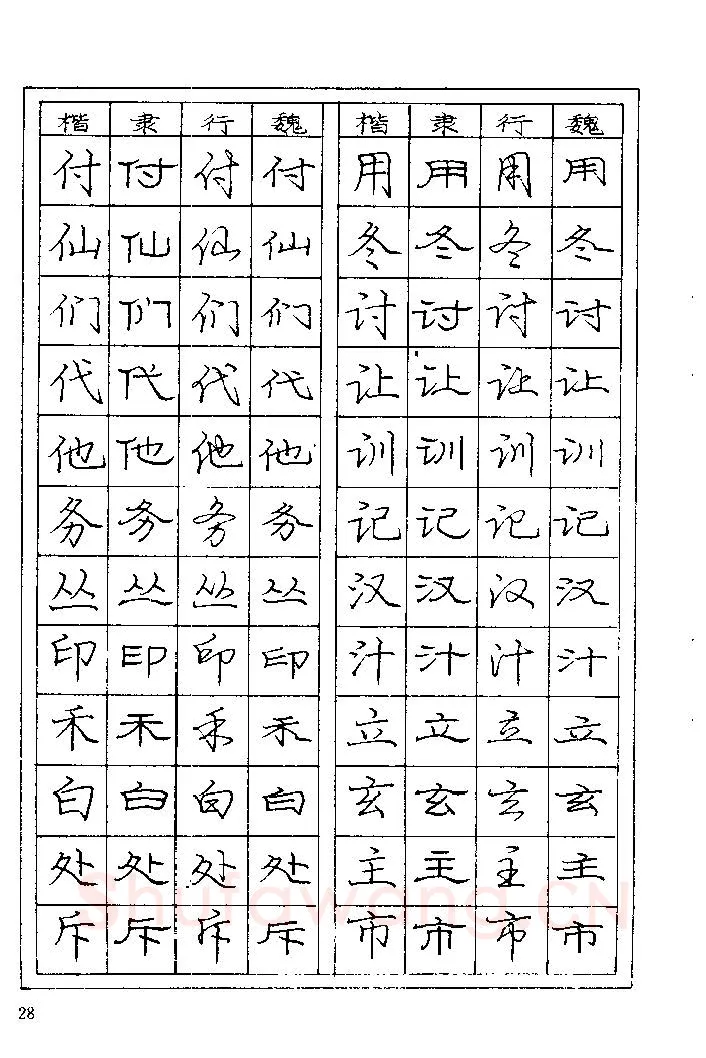 楷 隶 行 魏 楷 隶 行 魏
付 付 付 付 用 用 用 用
仙 仙 仙 仙 冬 冬 冬 冬
们 们 们 们 讨 讨 讨 讨
代 代 代 代 让 让 让 让
他 他 他 他 训 训 训 训
务 务 务 务 记 记 记 记
丛 丛 丛 丛 汉 汉 汉 汉
印 印 印 印 汁 汁 汁 汁
禾 禾 禾 禾 立 立 立 立
白 白 白 白 玄 玄 玄 玄
处 处 处 处 主 主 主 主
斥 斥 斥 斥 市 市 市 市
Shufawang.CN
28